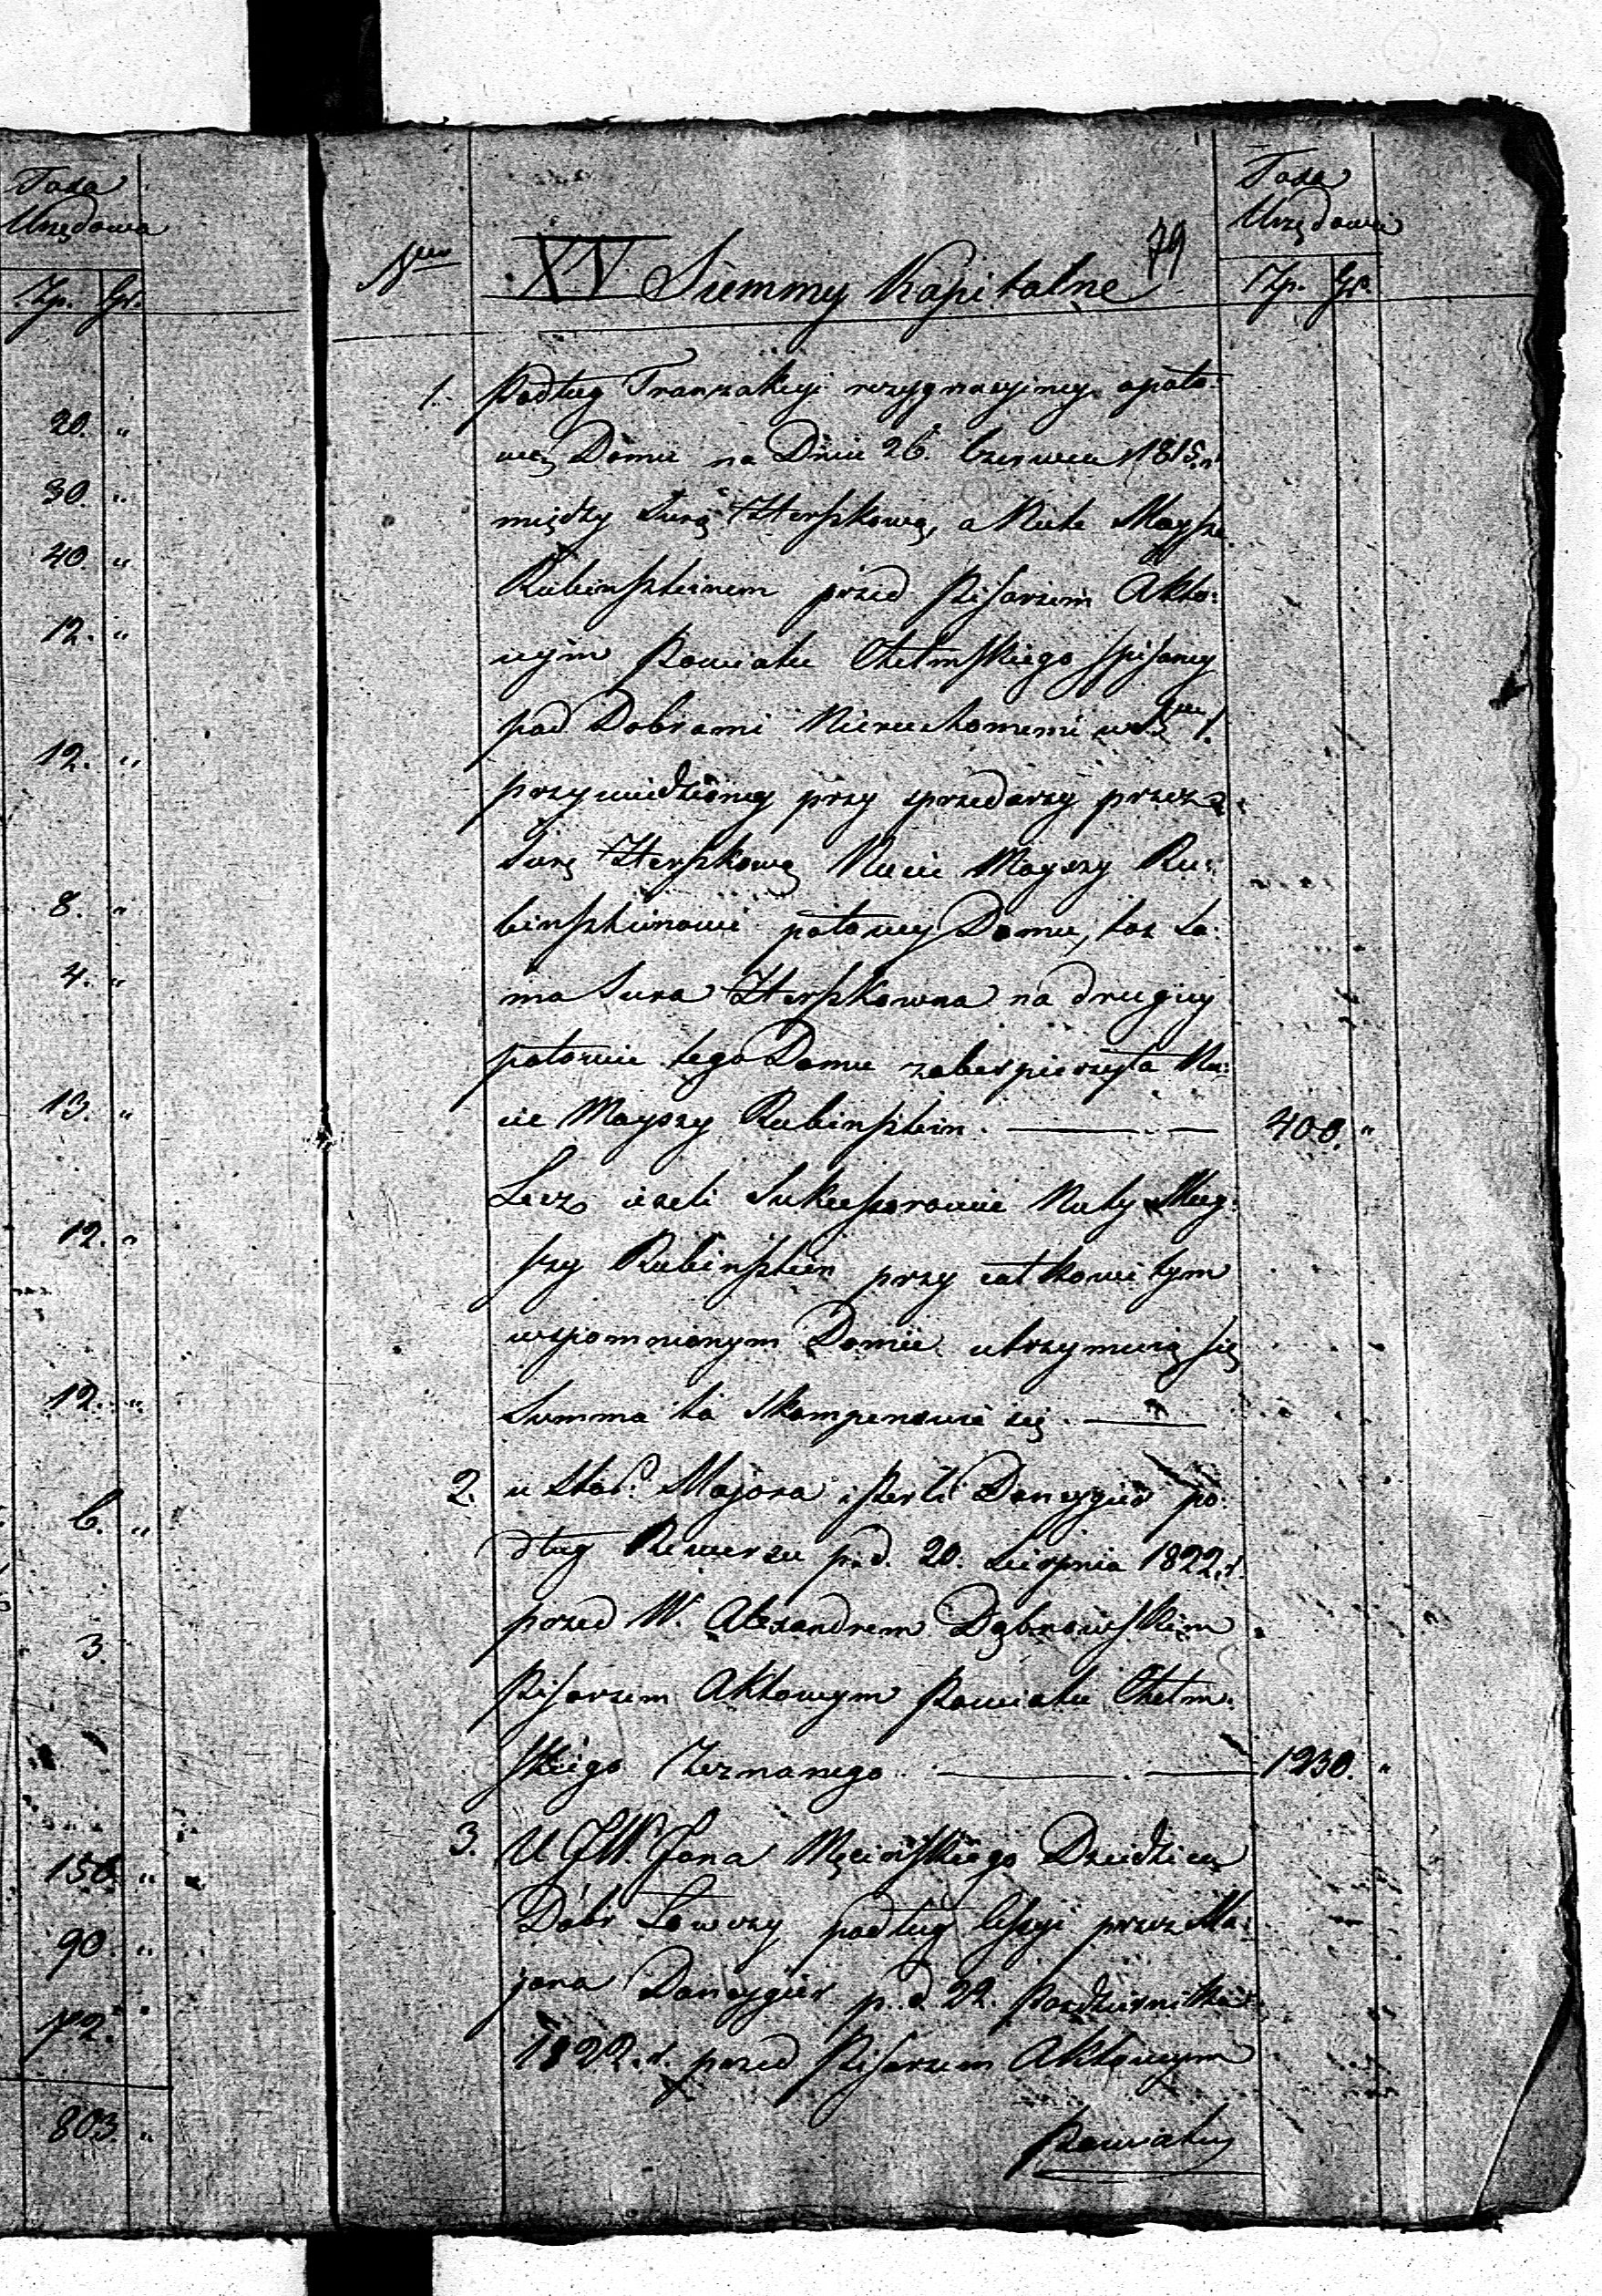 Taxa
Urzędowa
Zp. Gr.
20. "
30. "
40. "
12. "
12. "
8. "
4. "
13. "
12. "
12. "
6. "
3.
150. "
90. "
72. "
803. "
79
Taxa
Urzędowa
Nro XV Summy Kapitalne Zp. Gr.
1. Podług Tranzakcyi rezygnacyiney o poło-
wę Domu na Dniu 26. Czerwca 1815. r.
między Surą Herszkową, a Nuta Mayszą
Rubinszteinem przed Pisarzem Akto-
wym Powiatu Chełmskiego spisaney
pod Dobrami Nieruchomemi w Nrze 1.
przywiedzioney przy sprzedarzy przez
Surę Herszkową Nucie Mayszy Ru-
binszteinowi połowy Domu, taż sa-
ma Sura Herszkowna na drugiey
połowie tego Domu zabespieczyła Nu-
cie Mayszy Rubinsztein. 400. "
Lecz ieżeli Sukcessorowie Nuty May-
szy Rubinsztein przy całkowitym
wspomnionym Domie utrzymuią się
Summa ta skompensuie się.
2. u Star. Majora i Perli Dancygier po-
dług Rewersu p. d. 20. Sierpnia 1822. r.
przed W. Alexandrem Dąbrowskim
Pisarzem Aktowym Powiatu Chełm-
skiego Zeznanego. 1230. "
3. U JW. Jana Męcińskiego Dziedzica
Dóbr Łowczy podług Cessyi przez Ma-
jora Dancygier p. d. 22. Pazdziernika
1822. r. przed Pisarzem Aktowym
Powiatu